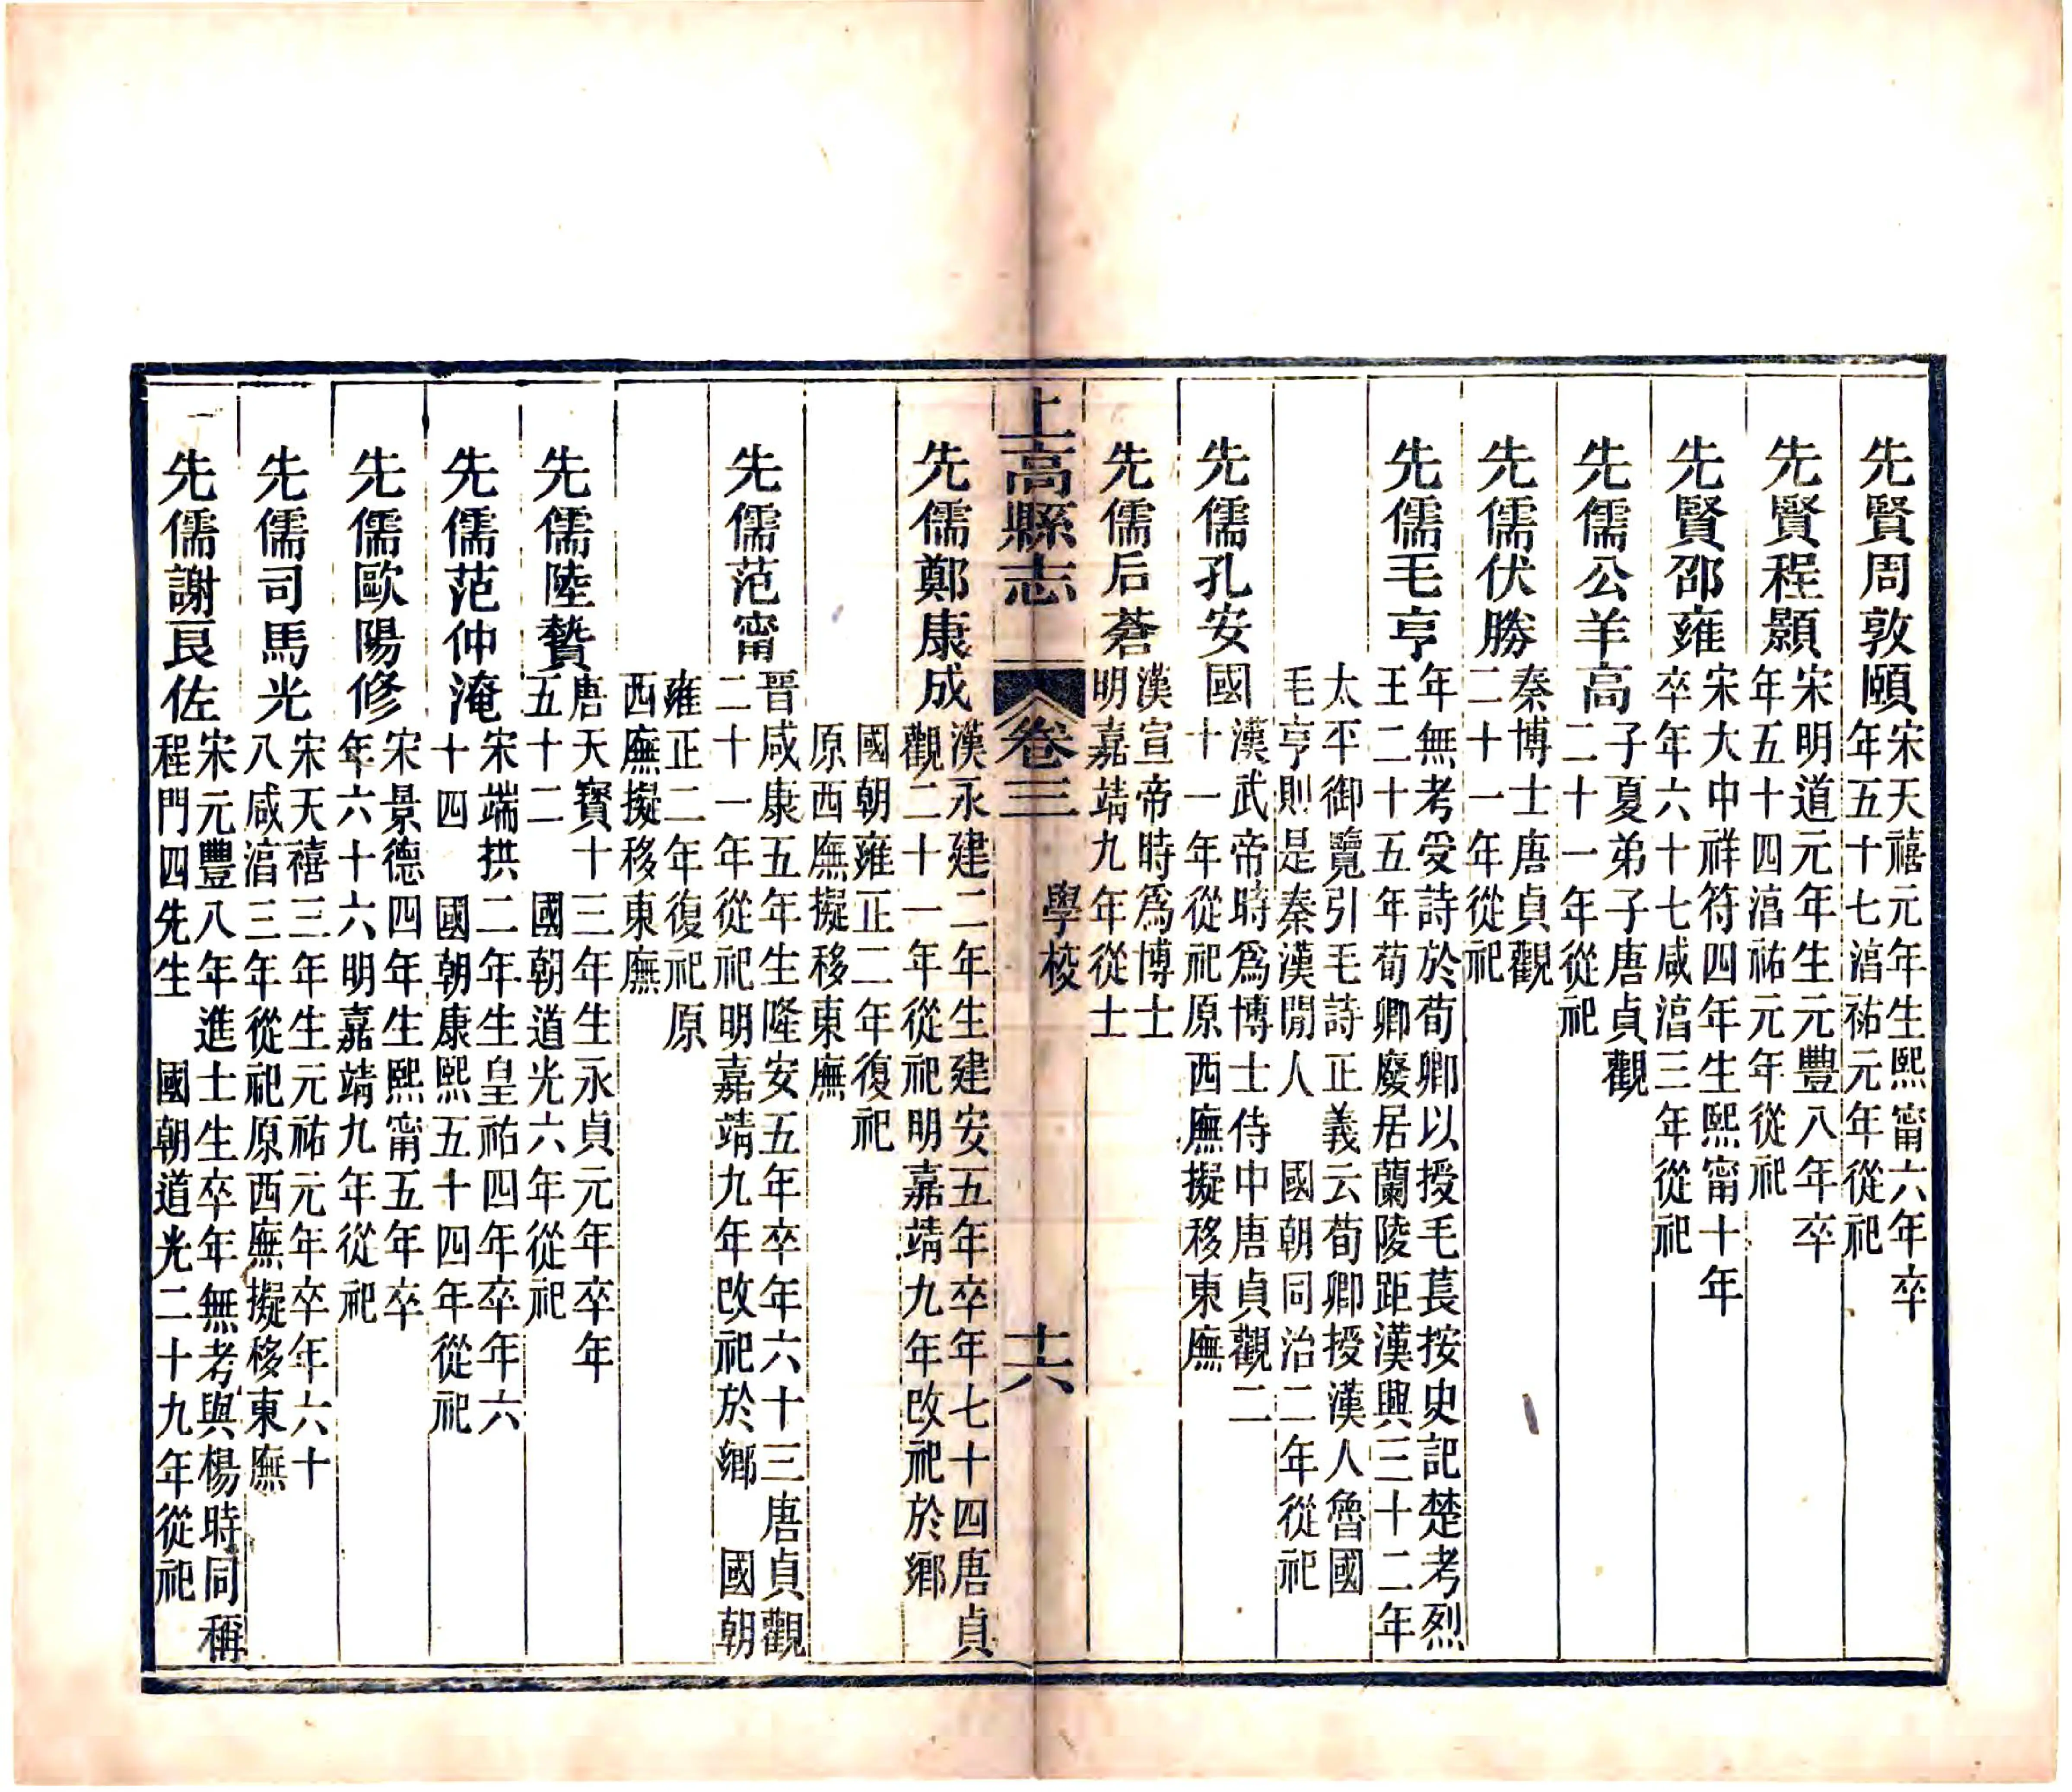 先賢周敦頤宋天禧元年生熙甯六年卒年五十七湻祐元年從祀
先賢程顥宋明道元年生元豐八年卒年五十四湻祐元年從祀
先賢邵雍宋大中祥符四年生熙甯十年卒年六十七咸湻三年從祀
先儒公羊高子夏弟子唐貞觀二十一年從祀
先儒伏勝秦博士唐貞觀二十一年從祀
先儒毛亨年無考受詩於荀卿以授毛萇按史記楚考烈王二十五年荀卿廢居蘭陵距漢興三十二年
太平御覽引毛詩正義云荀卿授漢人魯國毛亨則是秦漢閒人　國朝同治二年從祀
先儒孔安國漢武帝時爲博士侍中唐貞觀二十一年從祀原西廡擬移東廡
先儒后蒼漢宣帝時爲博士明嘉靖九年從士
上高縣志　卷三　學校　十六
先儒鄭康成漢永建二年生建安五年卒年七十四唐貞觀二十一年從祀明嘉靖九年改祀於鄉
國朝雍正二年復祀原西廡擬移東廡
先儒范甯晉咸康五年生隆安五年卒年六十三唐貞觀二十一年從祀明嘉靖九年改祀於鄉　國朝
雍正二年復祀原西廡擬移東廡
先儒陸贄唐天寶十三年生永貞元年卒年五十二　國朝道光六年從祀
先儒范仲淹宋端拱二年生皇祐四年卒年六十四　國朝康熙五十四年從祀
先儒歐陽修宋景德四年生熙甯五年卒年六十六明嘉靖九年從祀
先儒司馬光宋天禧三年生元祐元年卒年六十八咸湻三年從祀原西廡擬移東廡
先儒謝良佐宋元豐八年進士生卒年無考與楊時同稱程門四先生　國朝道光二十九年從祀